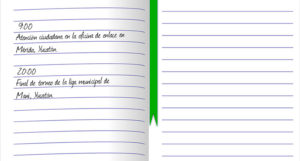 9:00
Atención ciudadana en la oficina de enlace en
Mérida, Yucatán
20:00
Final de torneo de la liga municipal de
Maní, Yucatán